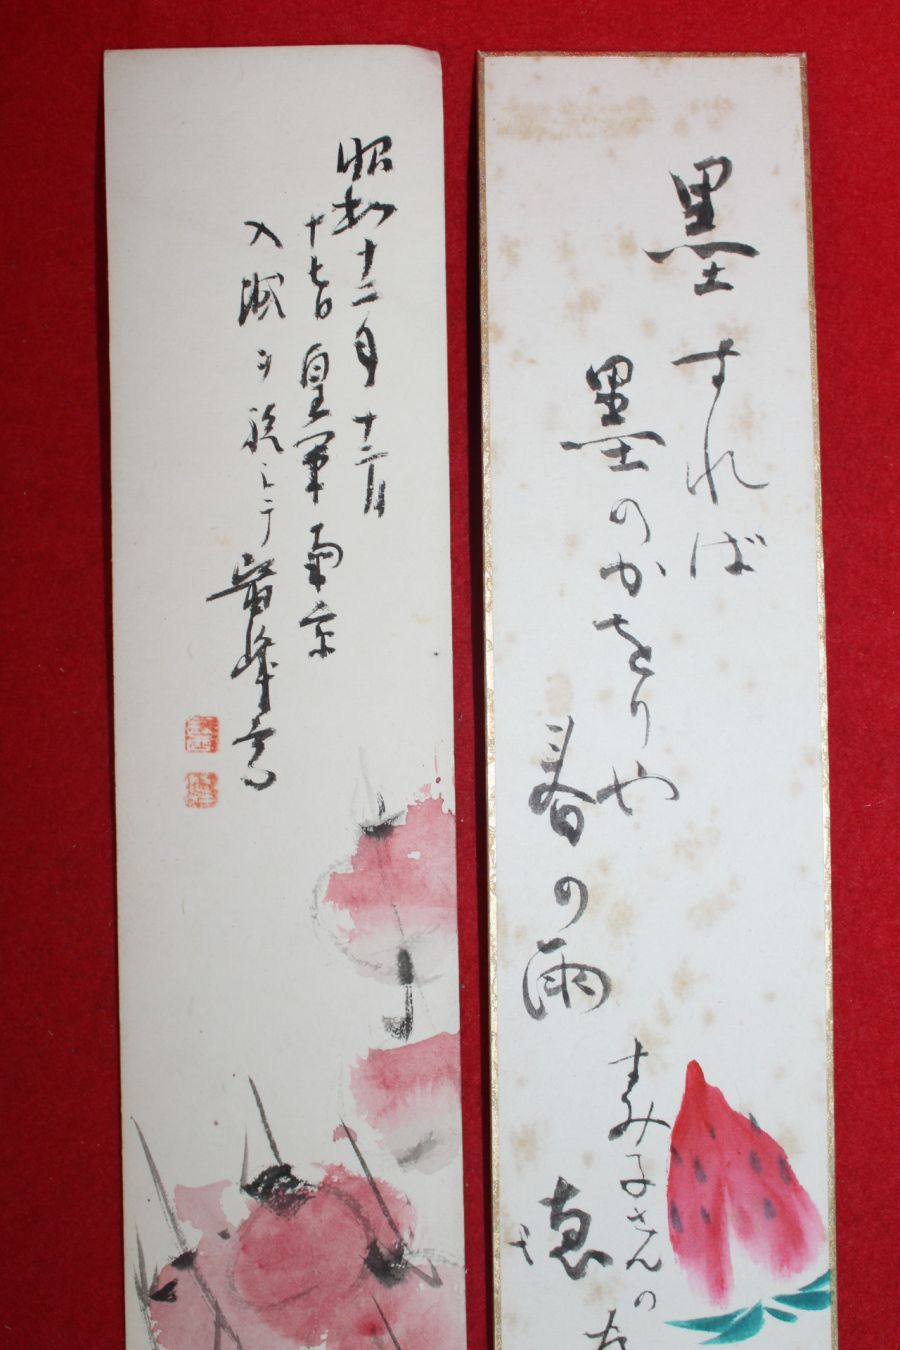 墨すれば
墨のかをりや
春の雨
すみ子さんの
昭和十二年十二月
十七日皇軍南京
入城ヲ祝シテ
峰